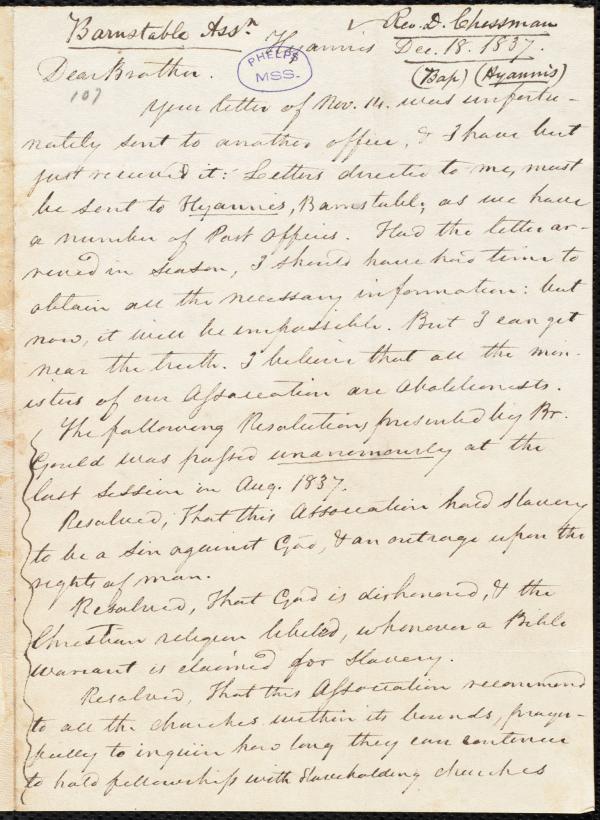 Barnstable Assn. ✓ Rev. D. Chessman
Hyannis Dec. 18. 1837.
(Bap) (Hyannis)
PHELPS
MSS.
Dear Brother.
107
Your letter of Nov. 14. was unfortu-
nately sent to another office, & I have but
just received it: Letters directed to me, must
be sent to Hyannis, Barnstable, as we have
a number of Post Offices. Had the letter ar-
rived in season, I should have had time to
obtain all the necessary information: but
now, it will be impossible. But I can get
near the truth. I believe that all the min-
isters of our Association are Abolitionists.
The following Resolutions presented by Br.
Gould was passed unanimously at the
last session in Aug. 1837.
Resolved, That this Association hold slavery
to be a sin against God, & an outrage upon the
rights of man.
Resolved, That God is dishonored, & the
Christian religion libeled, whenever a Bible
warrant is claimed for slavery.
Resolved, That this Association recommend
to all the churches within its bounds, prayer-
fully to inquire how long they can continue
to hold fellowship with slaveholding churches